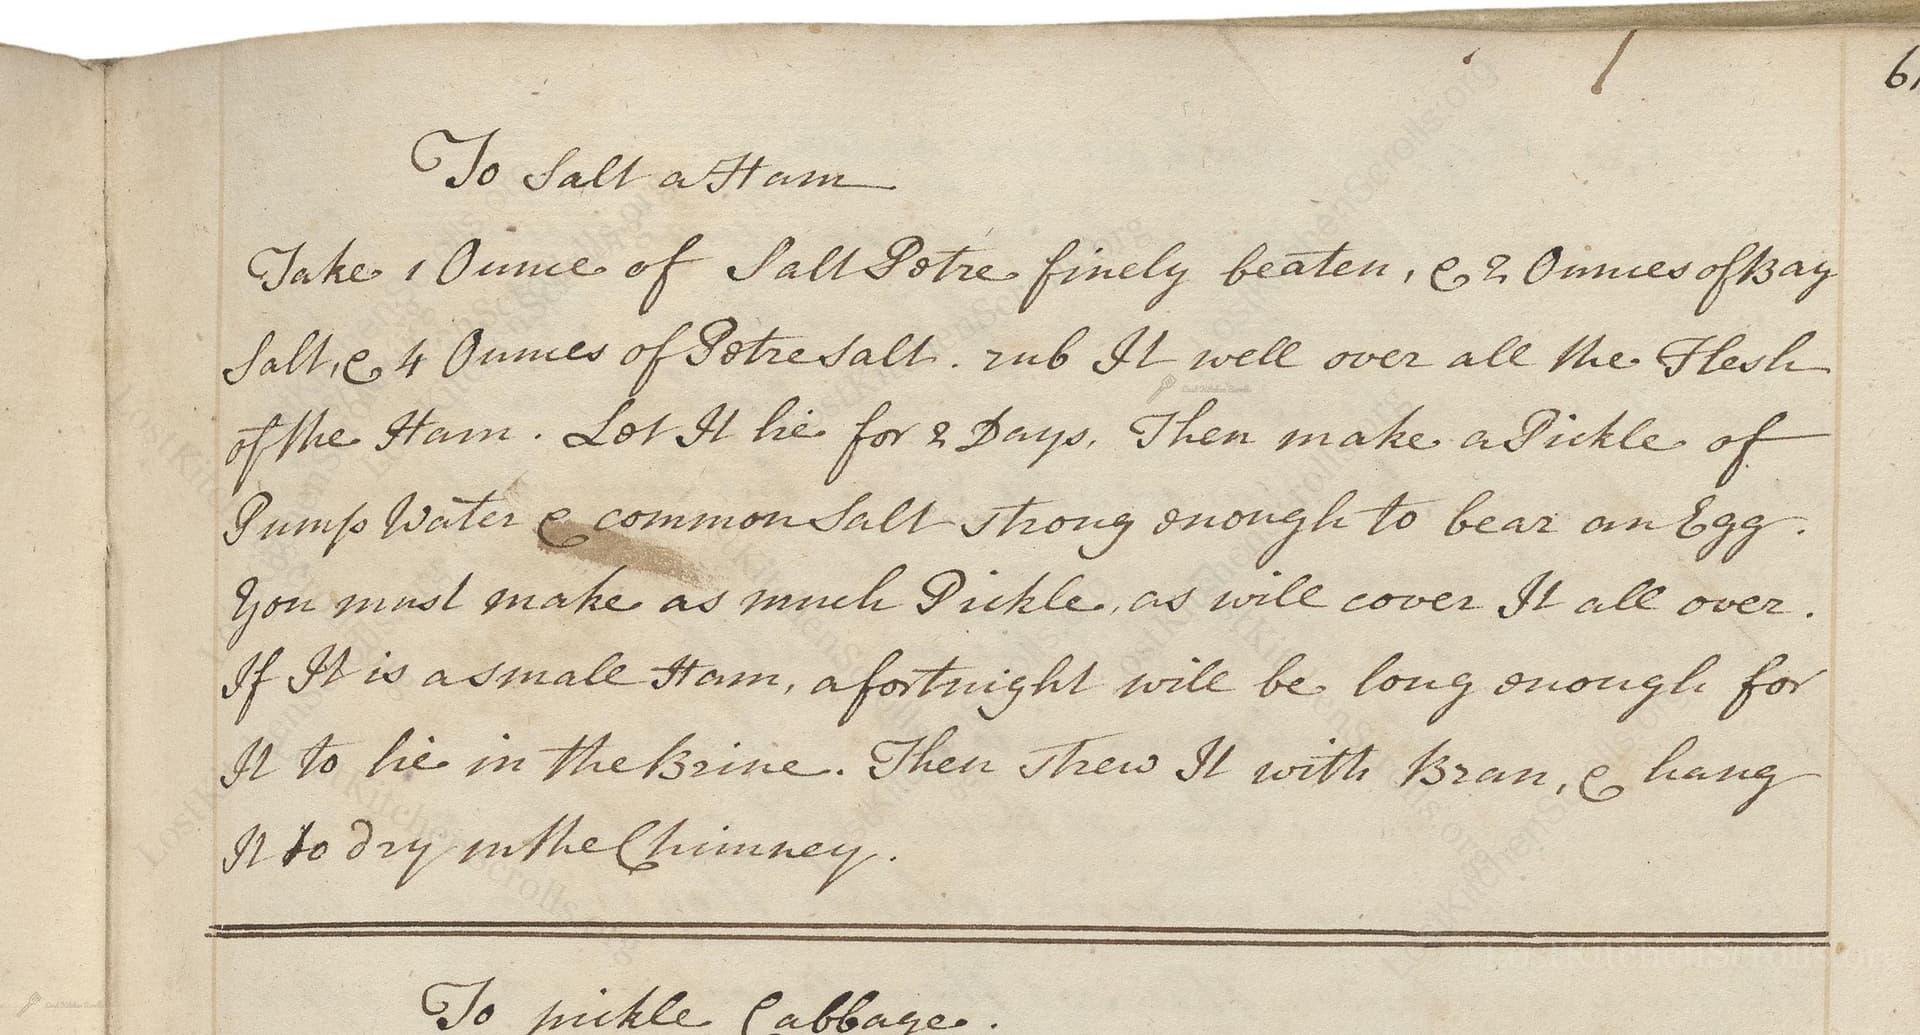 61
To Salt a Ham
Take 1 Ounce of Salt Petre finely beaten, & 2 Ounces of Bay
Salt, & 4 Ounces of Petre Salt. rub It well over all the Flesh
of the Ham. Let It lie for 2 Days. Then make a Pickle of
Pump Water & common Salt strong enough to bear an Egg.
You must make as much Pickle, as will cover It all over.
If It is a small Ham, a fortnight will be long enough for
It to lie in the Brine. Then strew It with Bran, & hang
It to dry in the Chimney.
To pickle Cabbage.